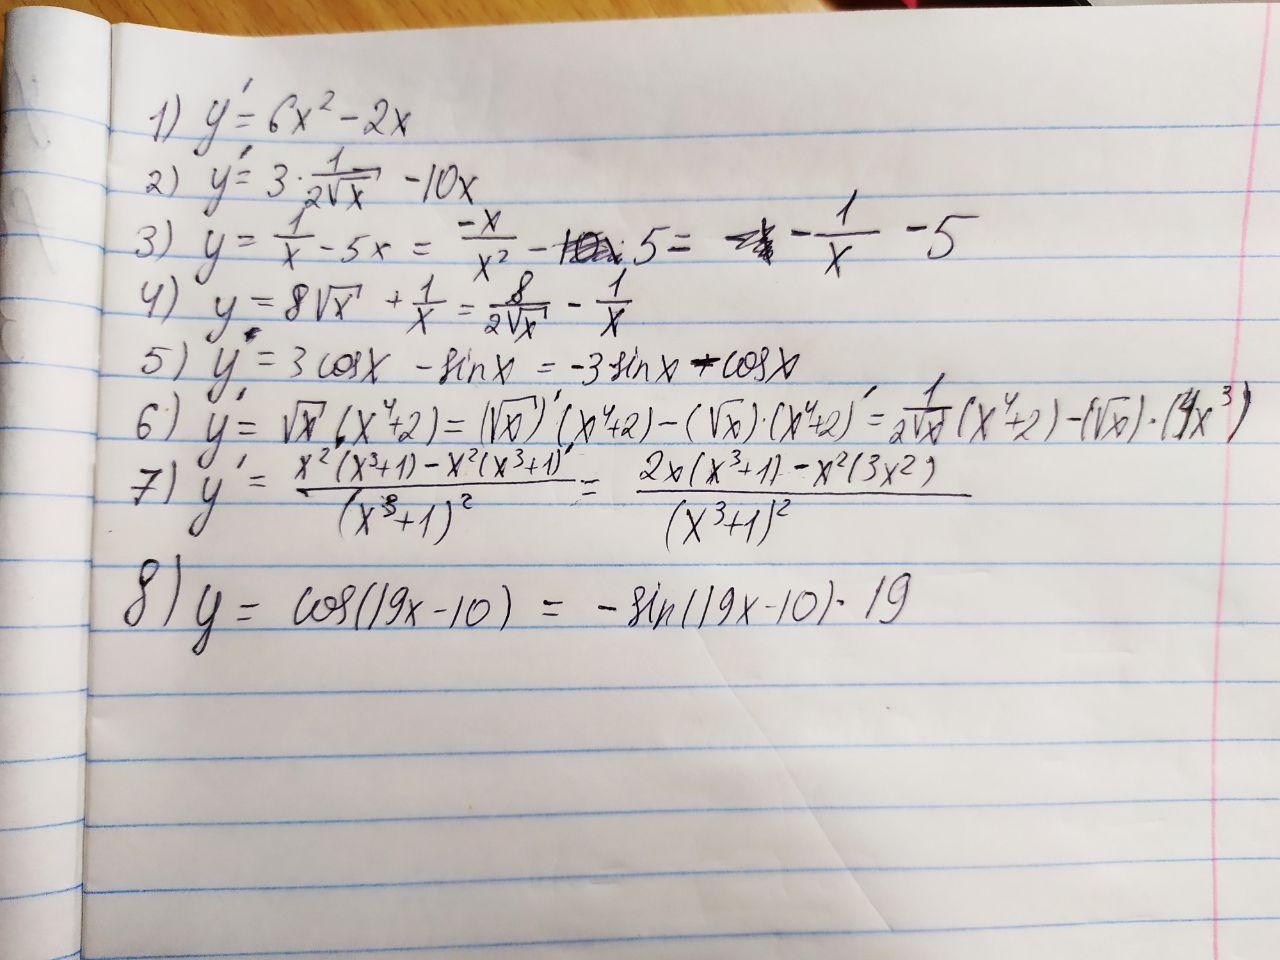 1) y' = 6x² - 2x
2) y' = 3 · 1/(2√x) - 10x
3) y = 1/x - 5x = -x/x² - 5 = - 1/x - 5
4) y = 8√x + 1/x = 8/(2√x) - 1/x
5) y' = 3cosx - sinx = -3sinx - cosx
6) y' = √x (x⁴+2) = (√x)' (x⁴+2) - (√x)·(x⁴+2)' = 1/(2√x) (x⁴+2) - (√x)·(4x³)
7) y' = (x²'(x³+1) - x²(x³+1)')/(x³+1)² = (2x(x³+1) - x²(3x²))/(x³+1)²
8) y = cos(19x-10) = -sin(19x-10)·19